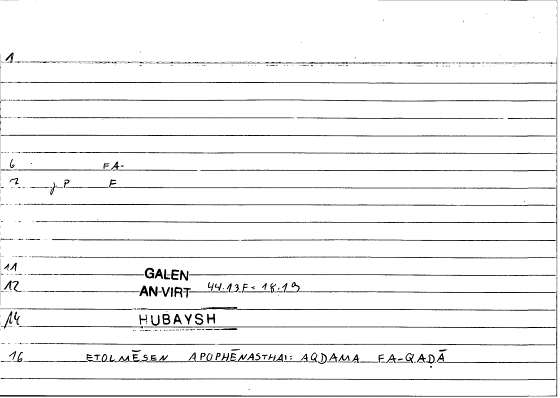 1
6 FA-
7 j P F
11 GALEN
12 AN VIRT 44.13F = 18.19
14 HUBAYSH
16 ETOLMĒSEN APOPHĒNASTHAI: AQDAMA FA-QAḌĀ